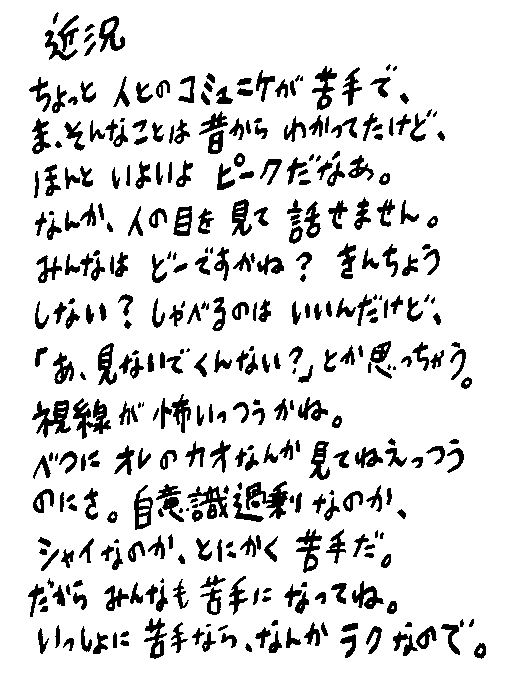 近況
ちょっと 人とのコミュニケが苦手で、
ま、そんなことは昔から わかってたけど、
ほんと いよいよ ピークだなぁ。
なんか、人の目を見て 話せません。
みんなは どーですかね？ きんちょう
しない？ しゃべるのは いいんだけど、
「あ、見ないでくんない？」とか思っちゃう。
視線が怖いっつうかね。
べつに オレのカオなんか見てねえっつう
のにさ。自意識過剰なのか、
シャイなのか、とにかく 苦手だ。
だから みんなも苦手に なってね。
いっしょに 苦手なら、なんか ラクなので。